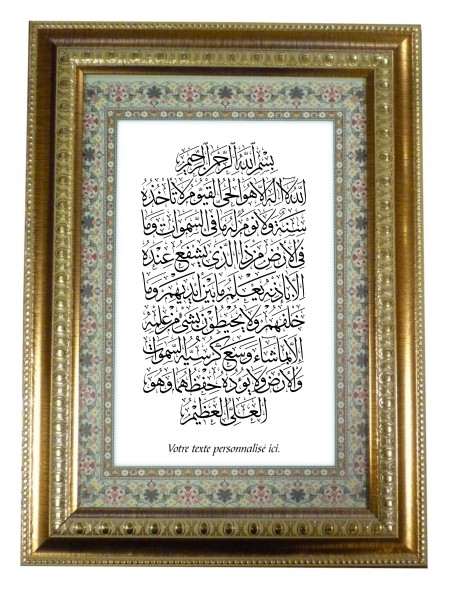 بِسْمِ اللَّهِ الرَّحْمَنِ الرَّحِيمِ
الله لا اله الا هو الحي القيوم لا تأخذه
سنة ولا نوم له ما في السموات وما
في الارض من ذا الذي يشفع عنده
الا باذنه يعلم ما بين ايديهم وما
خلفهم ولا يحيطون بشيء من علمه
الا بما شاء وسع كرسيه السموات
والارض ولا يوده حفظهما وهو
العلي العظيم
Votre texte personnalisé ici.